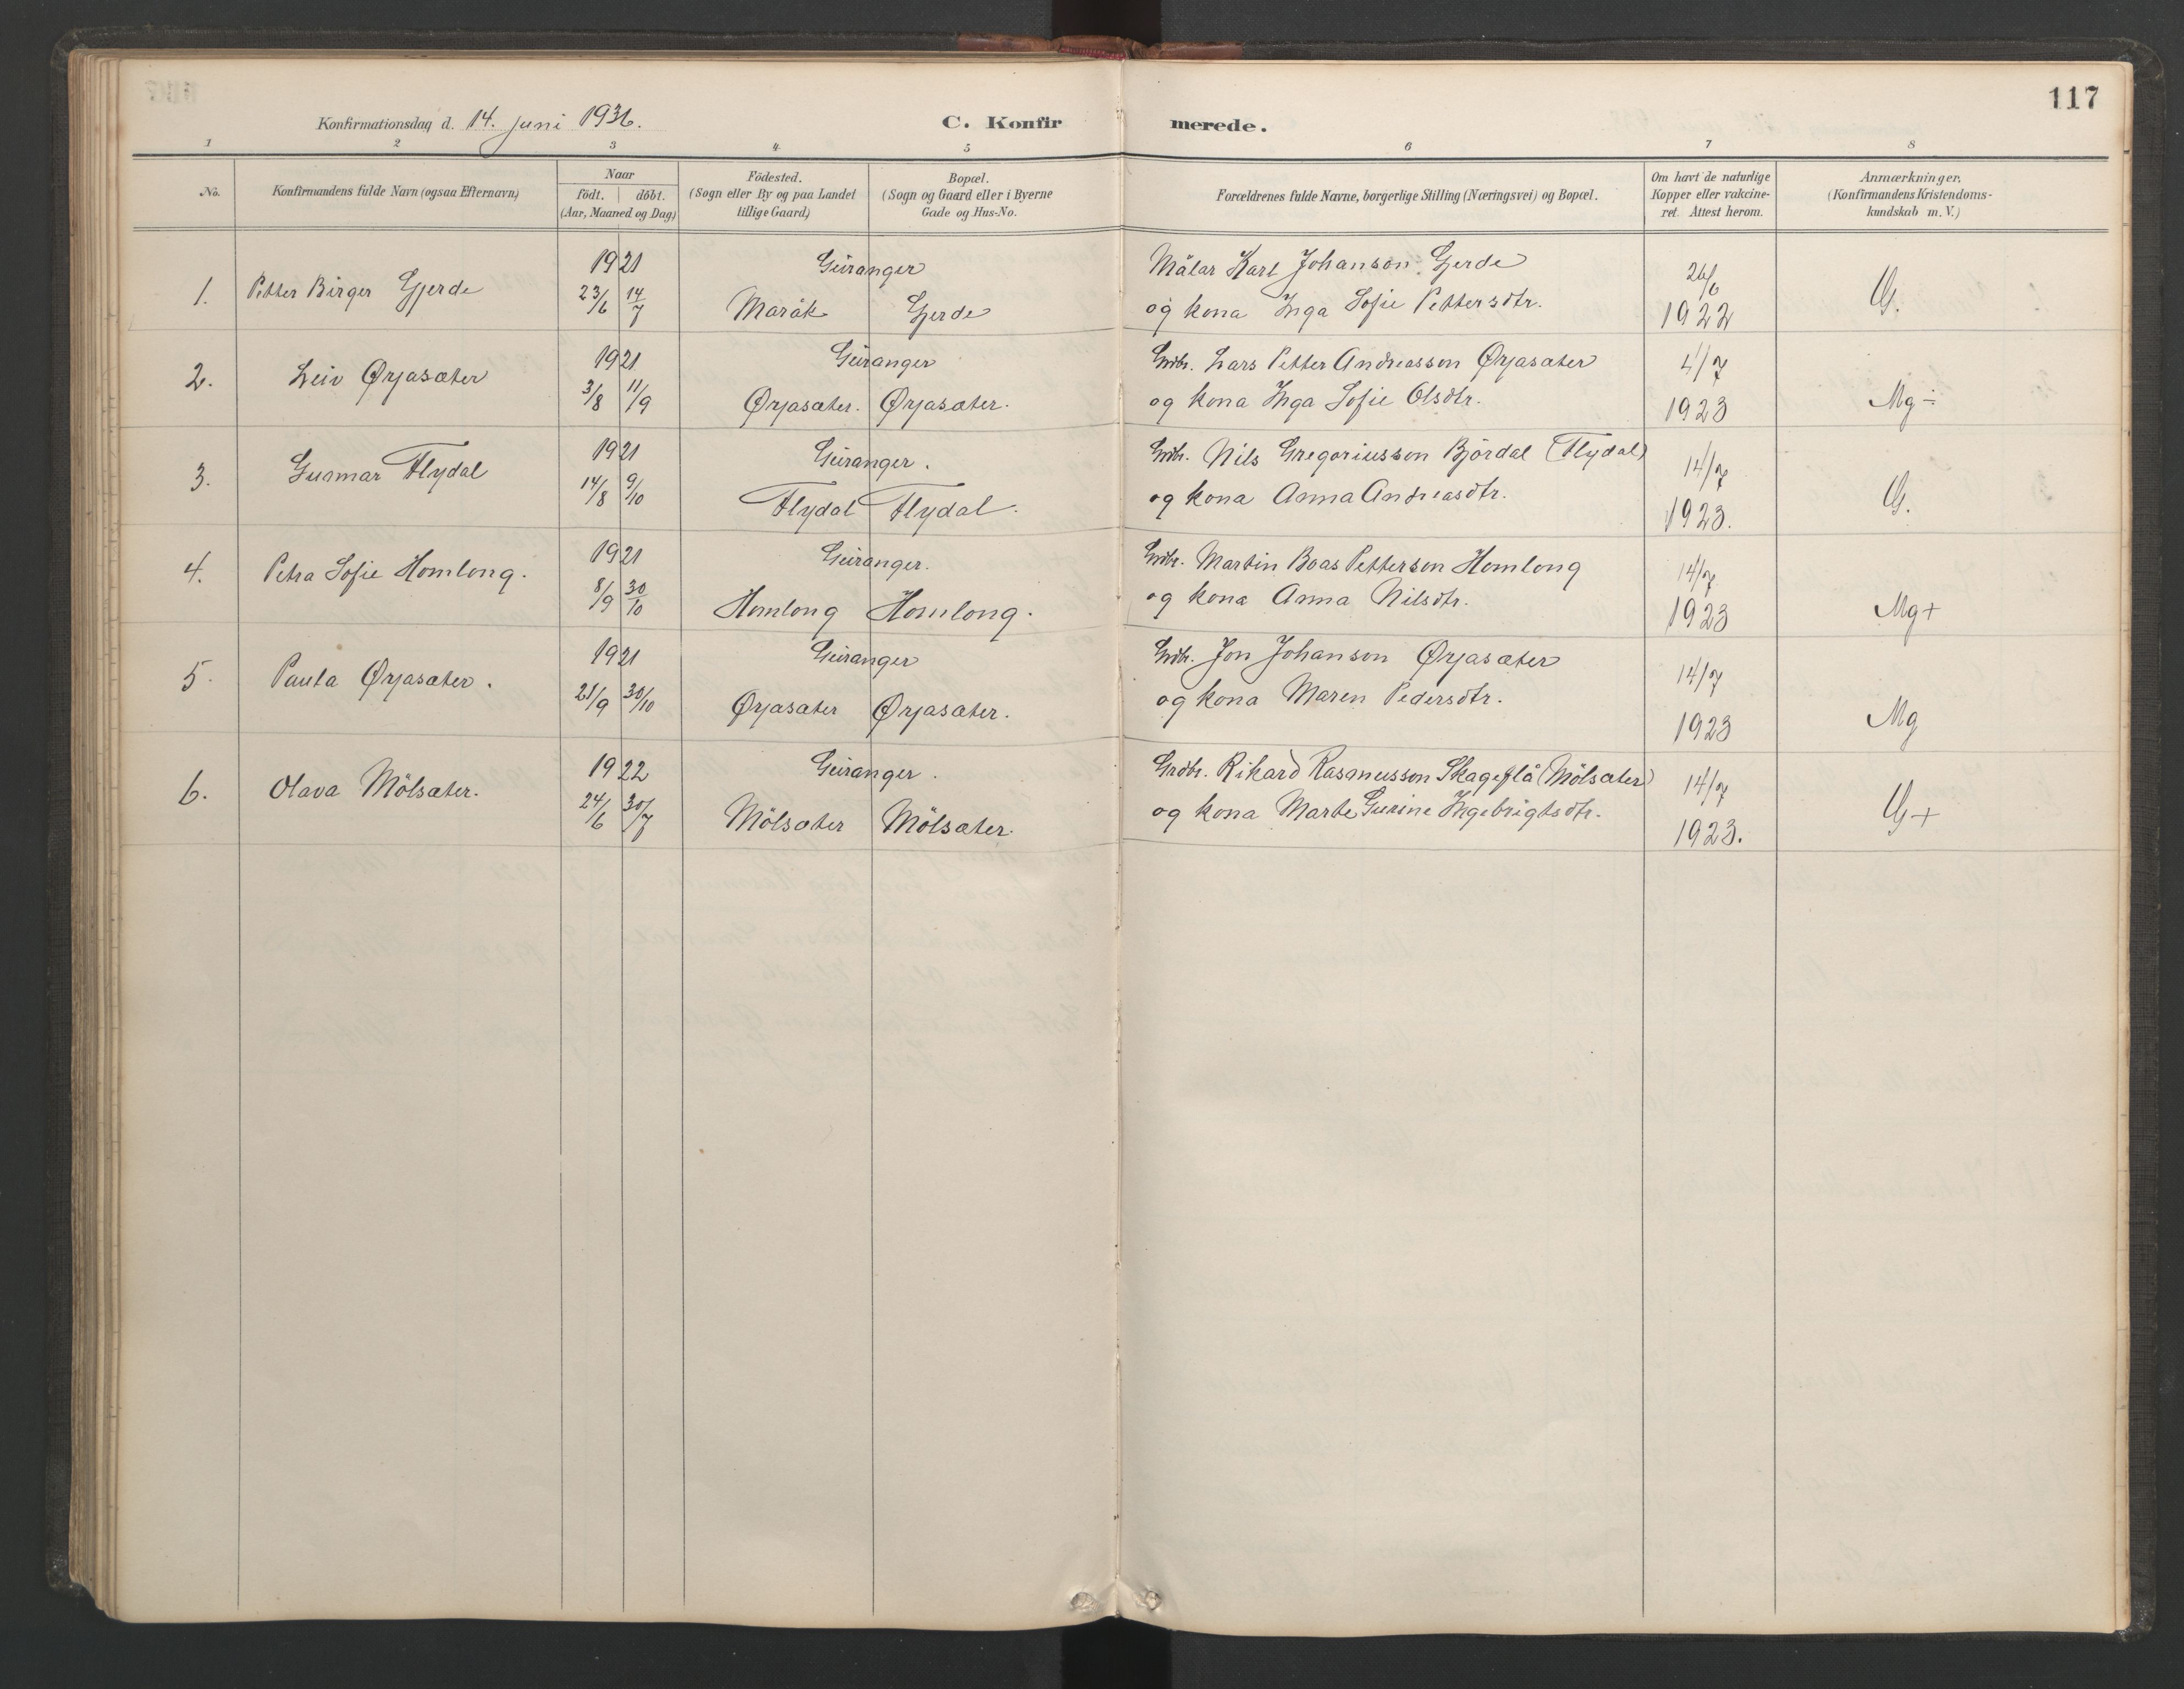 117
Konfirmationsdag d. 14. juni 1936.
C. Konfirmerede.
1 2 3 4 5 6 7 8
No.
Konfirmandens fulde Navn (ogsaa Efternavn)
Naar
födt. döbt.
(Aar, Maaned og Dag)
Födested.
(Sogn eller By og paa Landet
tillige Gaard)
Bopæl.
(Sogn og Gaard eller i Byerne
Gade og Hus-No.
Forældrenes fulde Navne, borgerlige Stilling (Næringsvei) og Bopæl.
Om havt de naturlige
Kopper eller vakcine-
ret. Attest herom.
Anmærkninger.
(Konfirmandens Kristendoms-
kundskab m. V.)
1921 Geiranger Målar Karl Johanson Gjerde 26/6
1. Petter Birger Gjerde 23/6 14/7 Maråk Gjerde og kona Inga Sofie Pettersdtr. 1922 G.
1921 Geiranger Grdbr. Lars Petter Andreasson Ørjasæter 4/7
2. Leiv Ørjasæter 3/8 11/9 Ørjasæter. Ørjasæter. og kona Inga Sofie Olsdtr. 1923 Mg÷
1921 Geiranger. Grdbr. Nils Gregoriusson Bjørdal (Flydal) 14/7
3. Gunnar Flydal 14/8 9/10 Flydal Flydal. og kona Anna Andreasdtr. 1923. G.
1921 Geiranger. Grdbr. Martin Boas Petterson Homlong 14/7
4. Petra Sofie Homlong. 8/9 30/10 Homlong Homlong. og kona Anna Nilsdtr. 1923 Mg+
1921 Geiranger Grdbr. Jon Johanson Ørjasæter 14/7
5. Paula Ørjasæter. 21/9 30/10 Ørjasæter Ørjasæter. og kona Maren Pedersdtr. 1923 Mg
1922 Geiranger. Grdbr. Rikard Rasmusson Skageflå (Mölsæter) 14/7
6. Olava Mölsæter. 24/6 30/7 Mölsæter Mölsæter. og kona Marte Gurine Ingebrigtsdtr. 1923. G+